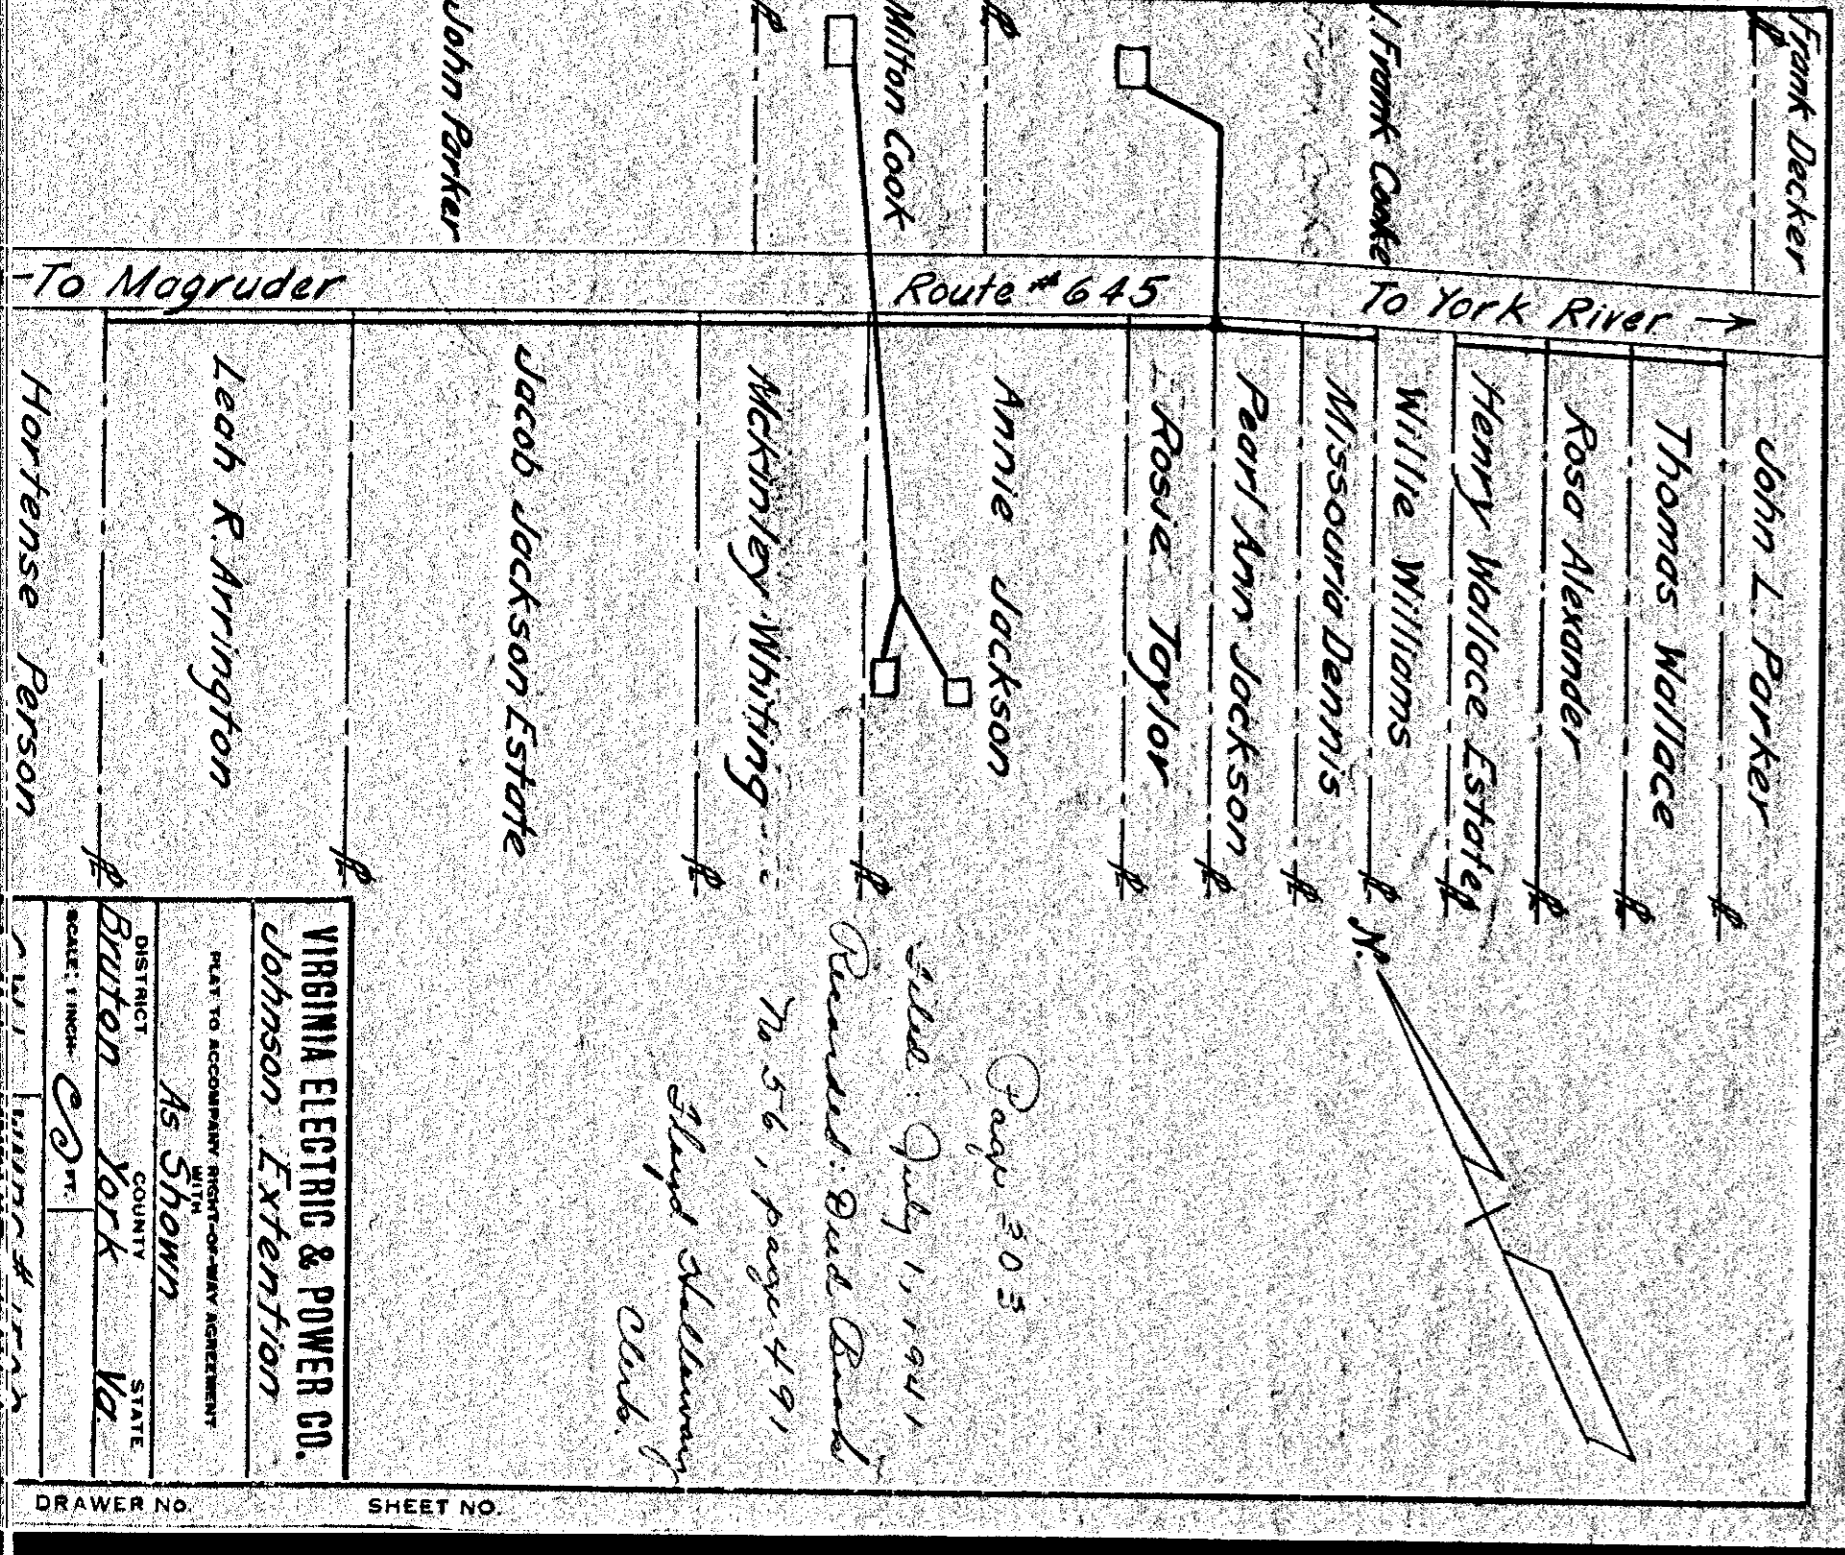 Frank Decker
J. Frank Cooke
Milton Cook
John Parker
-To Magruder
Route #645
To York River →
John L. Parker
Thomas Wallace
Rosa Alexander
Henry Wallace Estate
Willie Williams
Missouria Dennis
Pearl Ann Jackson
Rosie Taylor
Annie Jackson
McKinley Whiting
Jacob Jackson Estate
Leah R. Arrington
Hortense Person
N.
Page 303
Filed: July 1, 1941
Recorded: Deed Book
No 56, page 491
Floyd Holloway
Clerk.
VIRGINIA ELECTRIC & POWER CO.
Johnson Extention
PLAT TO ACCOMPANY RIGHT-OF-WAY AGREEMENT
WITH
As Shown
DISTRICT COUNTY STATE
Bruton York Va.
SCALE: 1 INCH= FT.
DRAWER NO. SHEET NO.